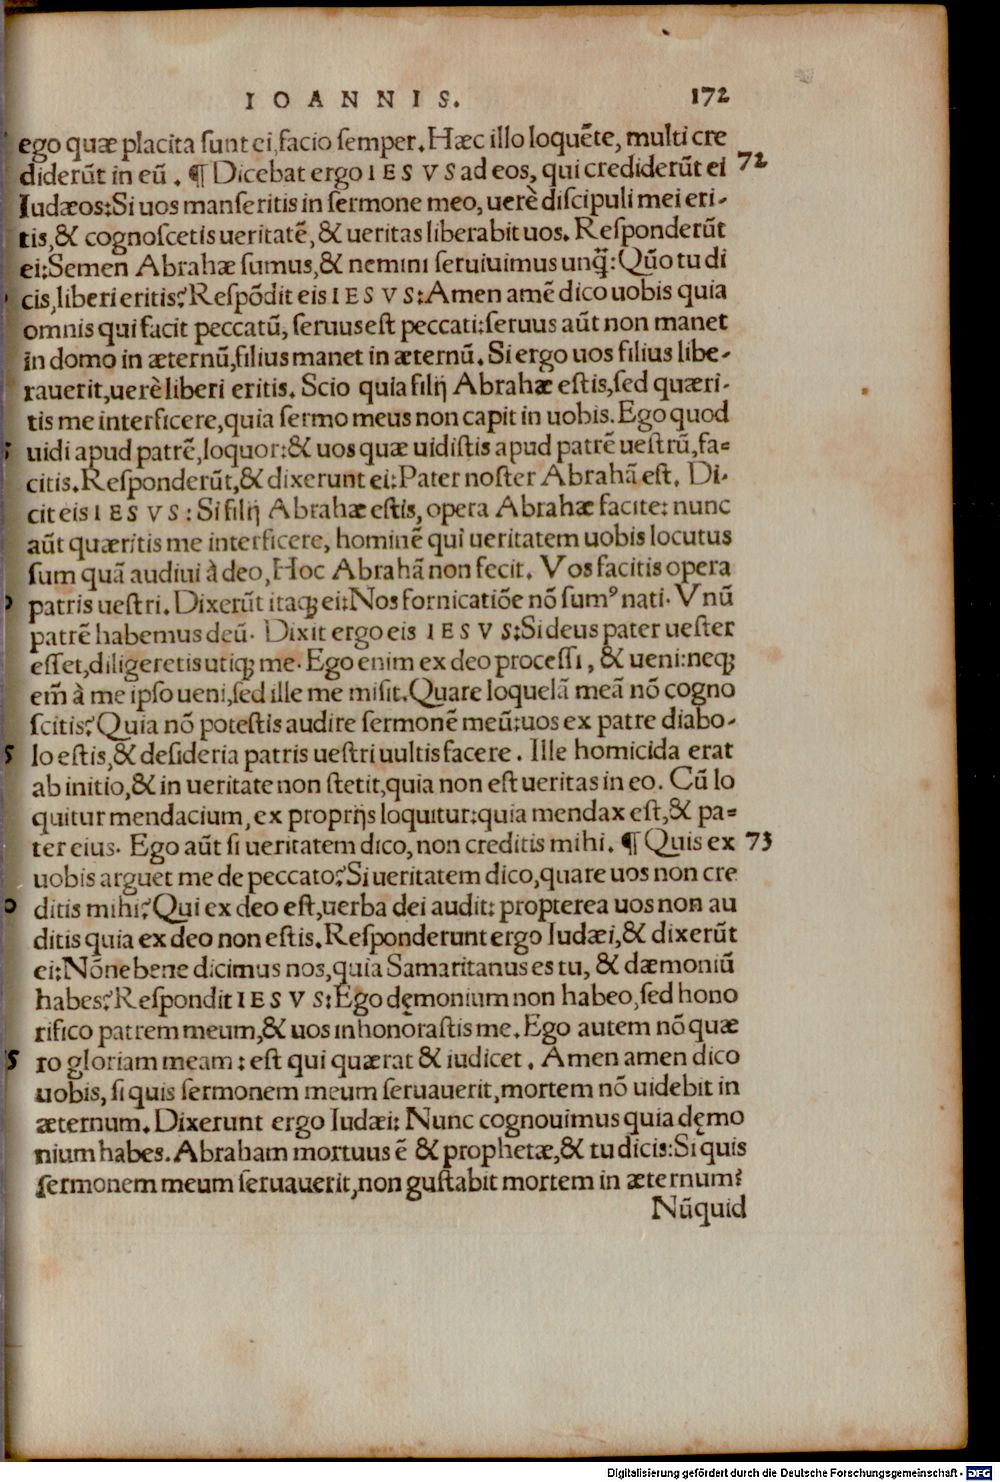 IOANNIS. 172
ego quæ placita ſunt ei, facio ſemper. Hæc illo loquēte, multi cre
diderūt in eū . ¶ Dicebat ergo IESVS ad eos, qui crediderūt ei 72
Iudæos: Si uos manſeritis in ſermone meo, uerè diſcipuli mei eri-
tis, & cognoſcetis ueritatē, & ueritas liberabit uos. Reſponderūt
ei: Semen Abrahæ ſumus, & nemini ſeruiuimus unq̃: Qūo tu di
cis, liberi eritis? Reſpōdit eis IESVS: Amen amē dico uobis quia
omnis qui facit peccatū, ſeruus eſt peccati: ſeruus aūt non manet
in domo in æternū, filius manet in æternū. Si ergo uos filius libe-
rauerit, uerè liberi eritis. Scio quia filij Abrahæ eſtis, ſed quæri-
tis me interficere, quia ſermo meus non capit in uobis. Ego quod
uidi apud patrē, loquor: & uos quæ uidiſtis apud patrē ueſtrū, fa=
citis. Reſponderūt, & dixerunt ei: Pater noſter Abrahā eſt. Di-
cit eis IESVS: Si filij Abrahæ eſtis, opera Abrahæ facite: nunc
aūt quæritis me interficere, hominē qui ueritatem uobis locutus
ſum quā audiui à deo, Hoc Abrahā non fecit. Vos facitis opera
patris ueſtri. Dixerūt itaqꝫ ei: Nos fornicatiōe nō ſumꝰ nati. Vnū
patrē habemus deū. Dixit ergo eis IESVS: Si deus pater ueſter
eſſet, diligeretis utiqꝫ me. Ego enim ex deo proceſſi, & ueni: neqꝫ
em̄ à me ipſo ueni, ſed ille me miſit. Quare loquelā meā nō cogno
ſcitis? Quia nō poteſtis audire ſermonē meū: uos ex patre diabo-
lo eſtis, & deſideria patris ueſtri uultis facere. Ille homicida erat
ab initio, & in ueritate non ſtetit, quia non eſt ueritas in eo. Cū lo
quitur mendacium, ex proprijs loquitur: quia mendax eſt, & pa=
ter eius. Ego aūt ſi ueritatem dico, non creditis mihi. ¶ Quis ex 73
uobis arguet me de peccato? Si ueritatem dico, quare uos non cre
ditis mihi? Qui ex deo eſt, uerba dei audit: propterea uos non au
ditis quia ex deo non eſtis. Reſponderunt ergo Iudæi, & dixerūt
ei: Nōne bene dicimus nos, quia Samaritanus es tu, & dæmoniū
habes? Reſpondit IESVS: Ego dęmonium non habeo, ſed hono
rifico patrem meum, & uos inhonoraſtis me. Ego autem nō quæ
ro gloriam meam: eſt qui quærat & iudicet. Amen amen dico
uobis, ſi quis ſermonem meum ſeruauerit, mortem nō uidebit in
æternum. Dixerunt ergo Iudæi: Nunc cognouimus quia dęmo
nium habes. Abraham mortuus ē & prophetæ, & tu dicis: Si quis
ſermonem meum ſeruauerit, non guſtabit mortem in æternum?
Nūquid
Digitalisierung gefördert durch die Deutsche Forschungsgemeinschaft - DFG